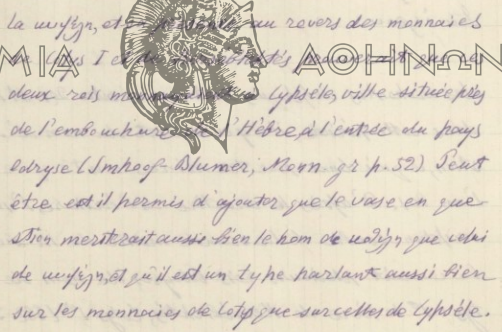 la κυψέλη, et sa présence au revers des monnaies
de Cotys I et de
ΜΙΑ ΑΘΗΝΩΝ
deux rois à Cypsèle, ville située près
de l'embouchure de l'Hèbre à l'entrée du pays
odryse (Imhoof-Blumer, Monn. gr p. 52) Peut
être est il permis d'ajouter que le vase en que-
stion meriterait aussi bien le nom de κοτύλη que celui
de κυψέλη, et qu'il est un type parlant aussi bien
sur les monnaies de Cotys que sur celles de Cypsèle.